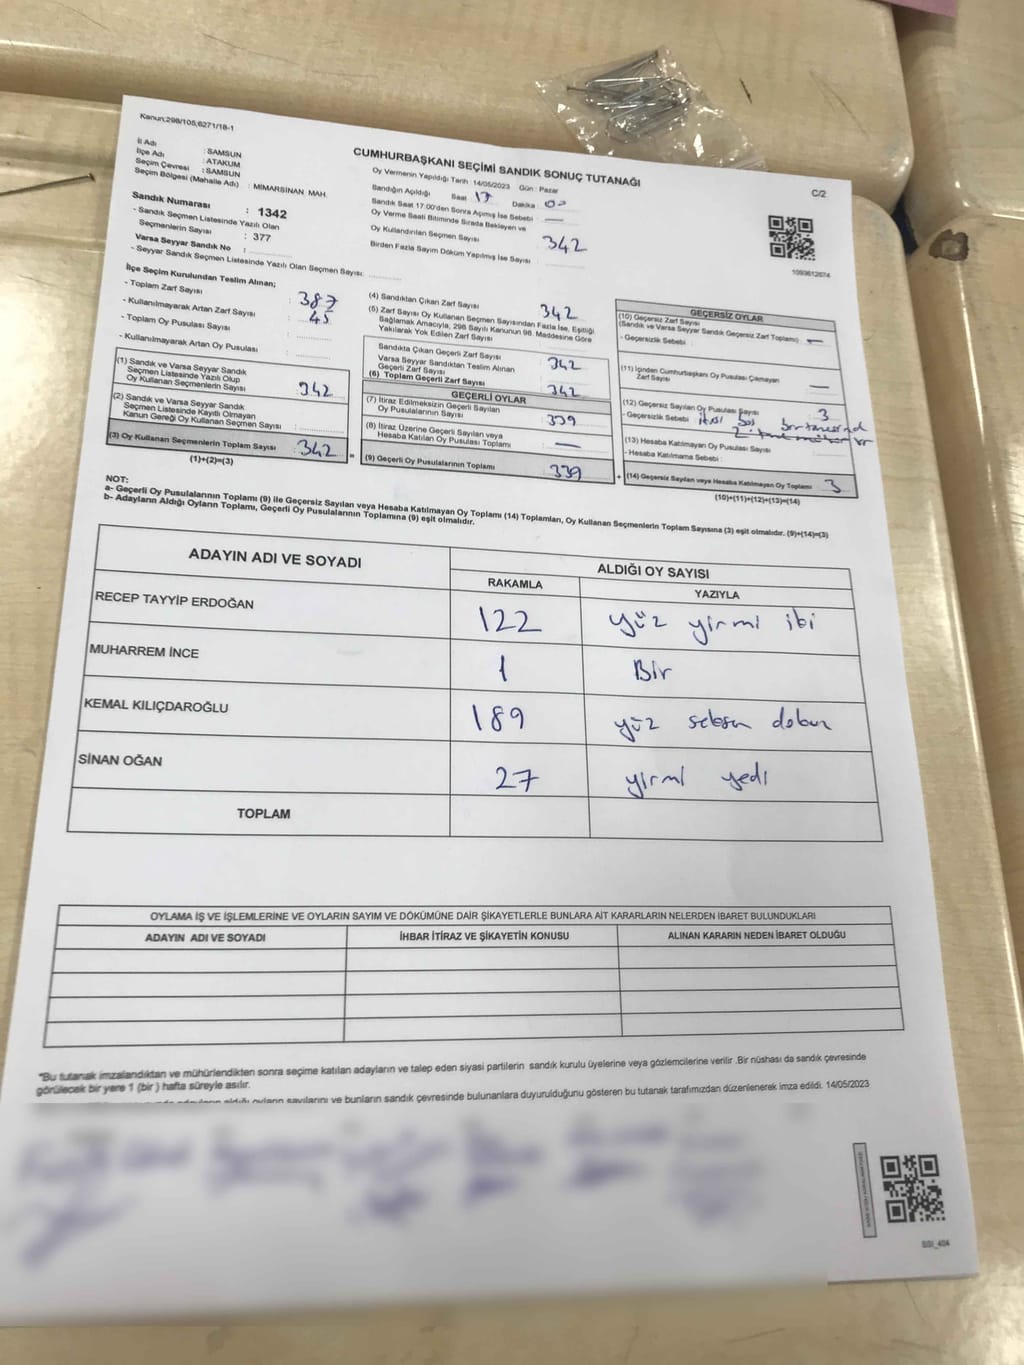 Kanun;298/105;6271/18-1
CUMHURBAŞKANI SEÇİMİ SANDIK SONUÇ TUTANAĞI
C/2
İl Adı : SAMSUN
İlçe Adı : ATAKUM
Seçim Çevresi : SAMSUN
Seçim Bölgesi (Mahalle Adı) : MIMARSİNAN MAH.
Sandık Numarası : 1342
- Sandık Seçmen Listesinde Yazılı Olan
Seçmenlerin Sayısı : 377
Varsa Seyyar Sandık No :
- Seyyar Sandık Seçmen Listesinde Yazılı Olan Seçmen Sayısı:
Oy Vermenin Yapıldığı Tarih 14/05/2023 Gün : Pazar
Sandığın Açıldığı Saat 17 Dakika 00
Sandık Saat 17:00'den Sonra Açımış İse Sebebi : —
Oy Verme Saati Bitiminde Sırada Bekleyen ve
Oy Kullandırılan Seçmen Sayısı : 342
Birden Fazla Sayım Döküm Yapılmış İse Sayısı :
1093612074
İlçe Seçim Kurulundan Teslim Alınan;
- Toplam Zarf Sayısı : 387
- Kullanılmayarak Artan Zarf Sayısı : 45
- Toplam Oy Pusulası Sayısı :
- Kullanılmayarak Artan Oy Pusulası :
(1) Sandık ve Varsa Seyyar Sandık
Seçmen Listesinde Yazılı Olup
Oy Kullanan Seçmenlerin Sayısı : 342
(2) Sandık ve Varsa Seyyar Sandık
Seçmen Listesinde Kayıtlı Olmayan
Kanun Gereği Oy Kullanan Seçmen Sayısı :
(3) Oy Kullanan Seçmenlerin Toplam Sayısı : 342
(1)+(2)=(3)
(4) Sandıktan Çıkan Zarf Sayısı : 342
(5) Zarf Sayısı Oy Kullanan Seçmen Sayısından Fazla İse, Eşitliği
Sağlamak Amacıyla, 298 Sayılı Kanunun 98. Maddesine Göre
Yakılarak Yok Edilen Zarf Sayısı :
Sandıkta Çıkan Geçerli Zarf Sayısı : 342
Varsa Seyyar Sandıktan Teslim Alınan
Geçerli Zarf Sayısı :
(6) Toplam Geçerli Zarf Sayısı : 342
GEÇERLİ OYLAR
(7) İtiraz Edilmeksizin Geçerli Sayılan
Oy Pusulalarının Sayısı : 339
(8) İtiraz Üzerine Geçerli Sayılan veya
Hesaba Katılan Oy Pusulası Toplamı : —
(9) Geçerli Oy Pusulalarının Toplamı : 339
GEÇERSİZ OYLAR
(10) Geçersiz Zarf Sayısı
(Sandık ve Varsa Seyyar Sandık Geçersiz Zarf Toplamı) : —
- Geçersizlik Sebebi :
(11) İçinden Cumhurbaşkanı Oy Pusulası Çıkmayan
Zarf Sayısı : —
(12) Geçersiz Sayılan Oy Pusulası Sayısı : 3
- Geçersizlik Sebebi : ikisi boş
(13) Hesaba Katılmayan Oy Pusulası Sayısı :
- Hesaba Katılmama Sebebi :
(14) Geçersiz Sayılan veya Hesaba Katılmayan Oy Toplamı : 3
(10)+(11)+(12)+(13)=(14)
NOT:
a- Geçerli Oy Pusulalarının Toplamı (9) ile Geçersiz Sayılan veya Hesaba Katılmayan Oy Toplamı (14) Toplamları, Oy Kullanan Seçmenlerin Toplam Sayısına (3) eşit olmalıdır. (9)+(14)=(3)
b- Adayların Aldığı Oyların Toplamı, Geçerli Oy Pusulalarının Toplamına (9) eşit olmalıdır.
ADAYIN ADI VE SOYADI
ALDIĞI OY SAYISI
RAKAMLA YAZIYLA
RECEP TAYYİP ERDOĞAN 122 yüz yirmi iki
MUHARREM İNCE 1 Bir
KEMAL KILIÇDAROĞLU 189 yüz seksen dokuz
SİNAN OĞAN 27 yirmi yedi
TOPLAM
OYLAMA İŞ VE İŞLEMLERİNE VE OYLARIN SAYIM VE DÖKÜMÜNE DAİR ŞİKAYETLERLE BUNLARA AİT KARARLARIN NELERDEN İBARET BULUNDUKLARI
ADAYIN ADI VE SOYADI İHBAR İTİRAZ VE ŞİKAYETİN KONUSU ALINAN KARARIN NEDEN İBARET OLDUĞU
"Bu tutanak imzalandıktan ve mühürlendikten sonra seçime katılan adayların ve talep eden siyasi partilerin sandık kurulu üyelerine veya gözlemcilerine verilir .Bir nüshası da sandık çevresinde
görülecek bir yere 1 (bir ) hafta süreyle asılır.
aldığı oyların sayılarını ve bunların sandık çevresinde bulunanlara duyurulduğunu gösteren bu tutanak tarafımızdan düzenlenerek imza edildi. 14/05/2023
SSI_404